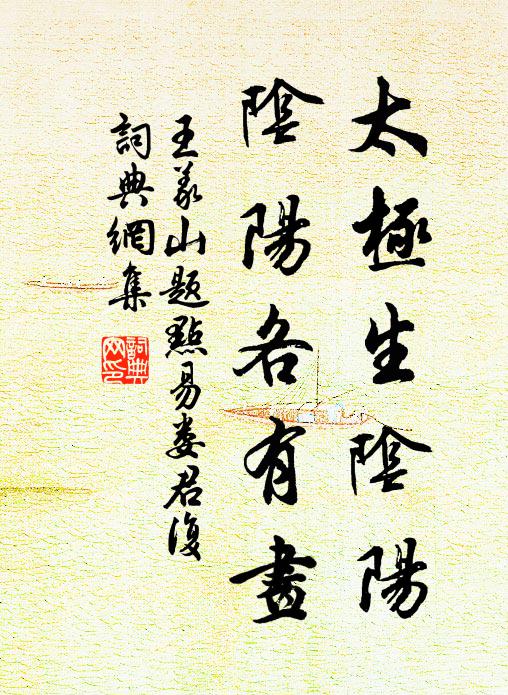 太極生陰陽
陰陽各有畫
王義山題點易婁君復
詞典網集
詞典网印